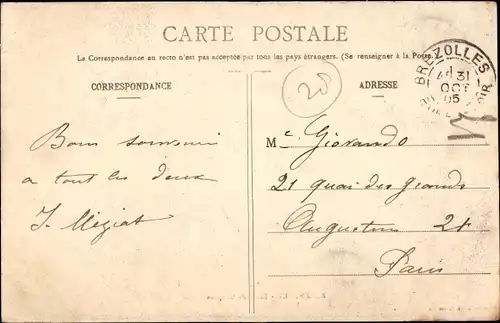 CARTE POSTALE
La Correspondance au recto n'est pas acceptée par tous les pays étrangers. (Se renseigner à la Poste)
CORRESPONDANCE
ADRESSE
20
BREZOLLES
31
OCT
05
Bons souvenir
a tout les deux
J. Méziat
M. Giovando
21 quai des grands
Augustin 21
Paris